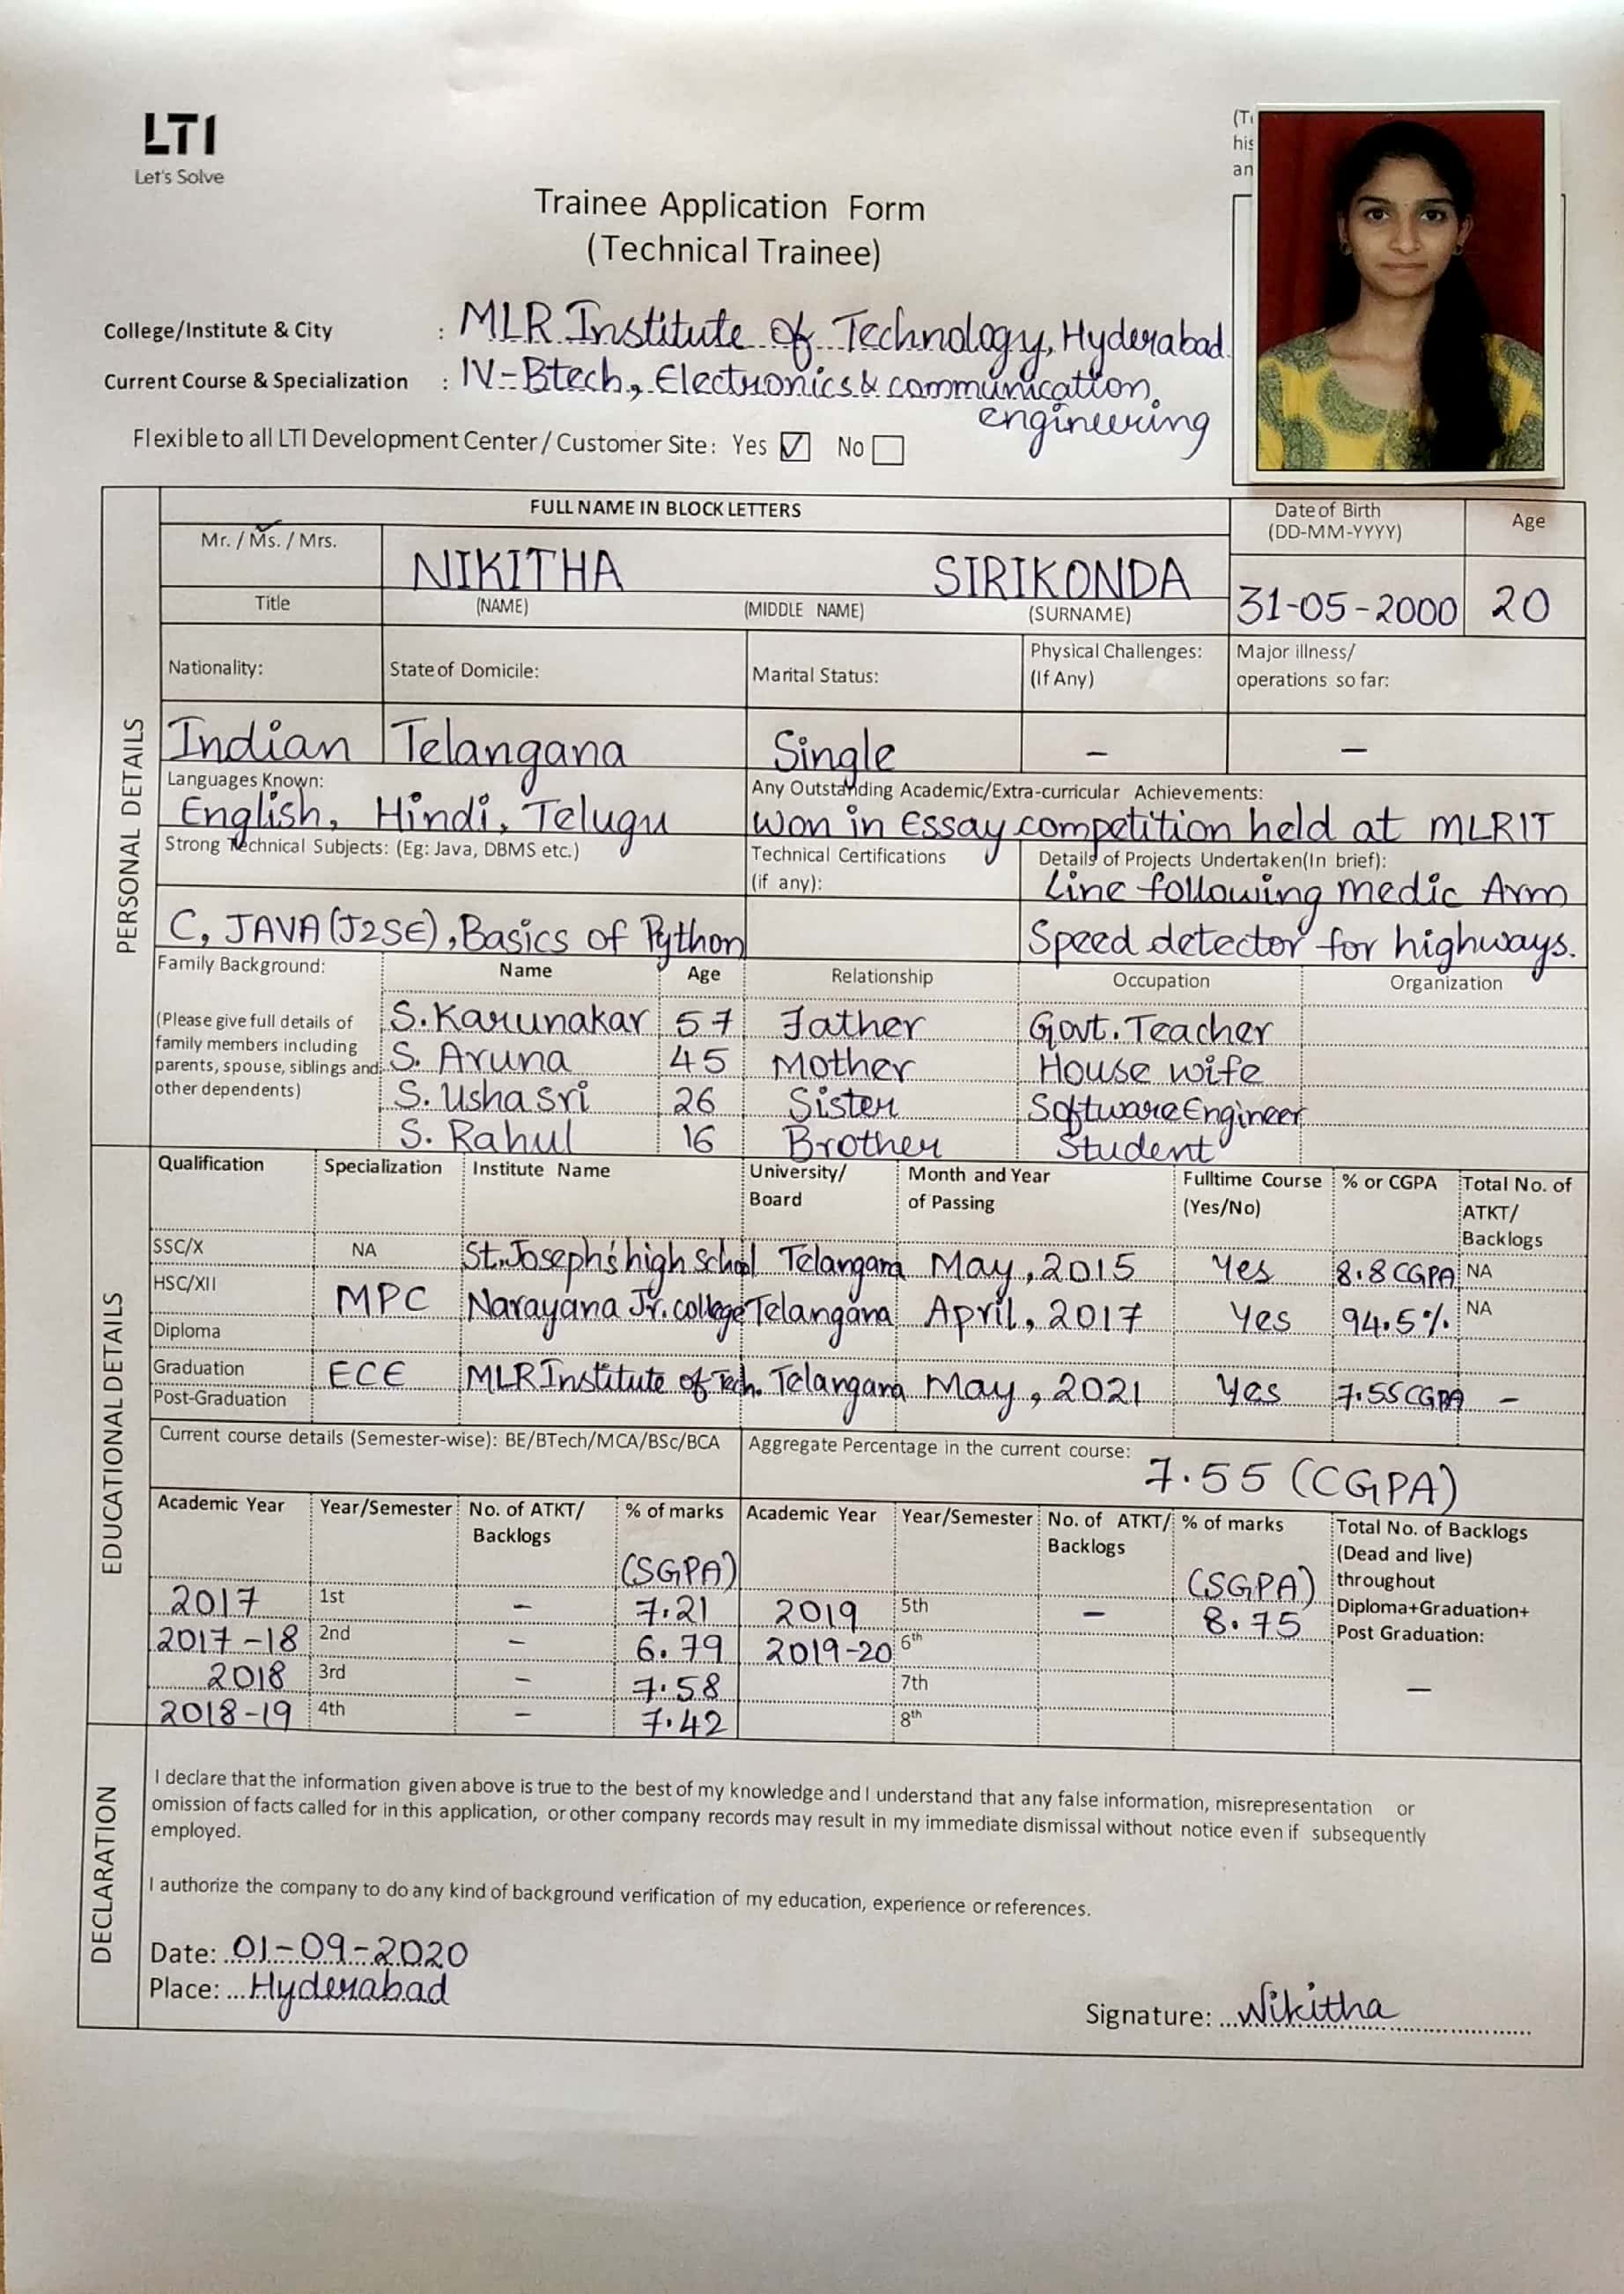 LTI
Let's Solve
(T
his
an
Trainee Application Form
(Technical Trainee)
College/Institute & City : MLR Institute of Technology, Hyderabad
Current Course & Specialization : IV-Btech, Electronics & communication
engineering
Flexible to all LTI Development Center / Customer Site: Yes ☑ No ☐
PERSONAL DETAILS
FULL NAME IN BLOCK LETTERS Date of Birth (DD-MM-YYYY) Age
Mr. / Ms. / Mrs. NIKITHA SIRIKONDA
Title (NAME) (MIDDLE NAME) (SURNAME) 31-05-2000 20
Nationality: State of Domicile: Marital Status: Physical Challenges: (If Any) Major illness/ operations so far:
Indian Telangana Single – –
Languages Known: Any Outstanding Academic/Extra-curricular Achievements:
English, Hindi, Telugu Won in Essay competition held at MLRIT
Strong Technical Subjects: (Eg: Java, DBMS etc.) Technical Certifications (if any): Details of Projects Undertaken(In brief):
Line following medic Arm
C, JAVA (J2SE), Basics of Python Speed detector for highways.
Family Background: Name Age Relationship Occupation Organization
(Please give full details of S. Karunakar 57 Father Govt. Teacher
family members including
parents, spouse, siblings and S. Aruna 45 Mother House wife
other dependents) S. Usha Sri 26 Sister Software Engineer
S. Rahul 16 Brother Student
EDUCATIONAL DETAILS
Qualification Specialization Institute Name University/ Board Month and Year of Passing Fulltime Course (Yes/No) % or CGPA Total No. of ATKT/ Backlogs
SSC/X NA St. Joseph's high School Telangana May, 2015 Yes 8.8 CGPA NA
HSC/XII MPC Narayana Jr. college Telangana April, 2017 Yes 94.5% NA
Diploma
Graduation ECE MLR Institute of Tech. Telangana May, 2021 Yes 7.55 CGPA –
Post-Graduation
Current course details (Semester-wise): BE/BTech/MCA/BSc/BCA Aggregate Percentage in the current course:
7.55 (CGPA)
Academic Year Year/Semester No. of ATKT/ Backlogs % of marks Academic Year Year/Semester No. of ATKT/ Backlogs % of marks Total No. of Backlogs
(Dead and live)
(SGPA) (SGPA) throughout
2017 1st – 7.21 2019 5th – 8.75 Diploma+Graduation+
2017-18 2nd – 6.79 2019-20 6th Post Graduation:
2018 3rd – 7.58 7th –
2018-19 4th – 7.42 8th
DECLARATION
I declare that the information given above is true to the best of my knowledge and I understand that any false information, misrepresentation or
omission of facts called for in this application, or other company records may result in my immediate dismissal without notice even if subsequently
employed.
I authorize the company to do any kind of background verification of my education, experience or references.
Date: 01-09-2020
Place: Hyderabad
Signature: Nikitha